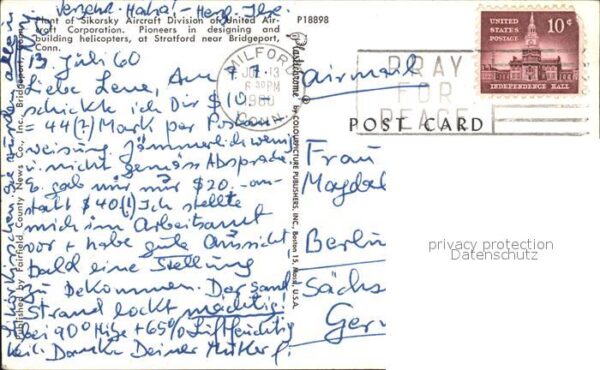 Plant of Sikorsky Aircraft Division of United Air-
craft Corporation. Pioneers in designing and
building helicopters, at Stratford near Bridgeport,
Conn.
P18898
13. Juli 60
Liebe Lene, Am 9.7.
schickte ich Dir $10.-
= 44(?) Mark per Postan-
weisung. Jämmerlich wenig
u. nicht gemäss Absprache
E. gab mir nur $20.- an-
statt $40(!) Ich stellte
mich im Arbeitsamt
vor + habe gute Aussicht,
bald eine Stellung
zu bekommen. Der Sand
Strand lockt mächtig!
bei 90° Hitze + 65% Luftfeuchtig
keit. Danke Deiner Mutter f.
Published by Fairfield County News Co., Inc., Bridgeport, Conn.
Plastichrome ® by COLOURPICTURE PUBLISHERS, INC., Boston 15, Mass., U.S.A.
MILFORD
JUL 13
6 30 PM
1960
CONN.
PRAY
FOR
PEACE
UNITED
STATES
POSTAGE
10¢
INDEPENDENCE HALL
airmail
POST CARD
Frau
Magdal
Berlin
Sächs
Ger
privacy protection
Datenschutz